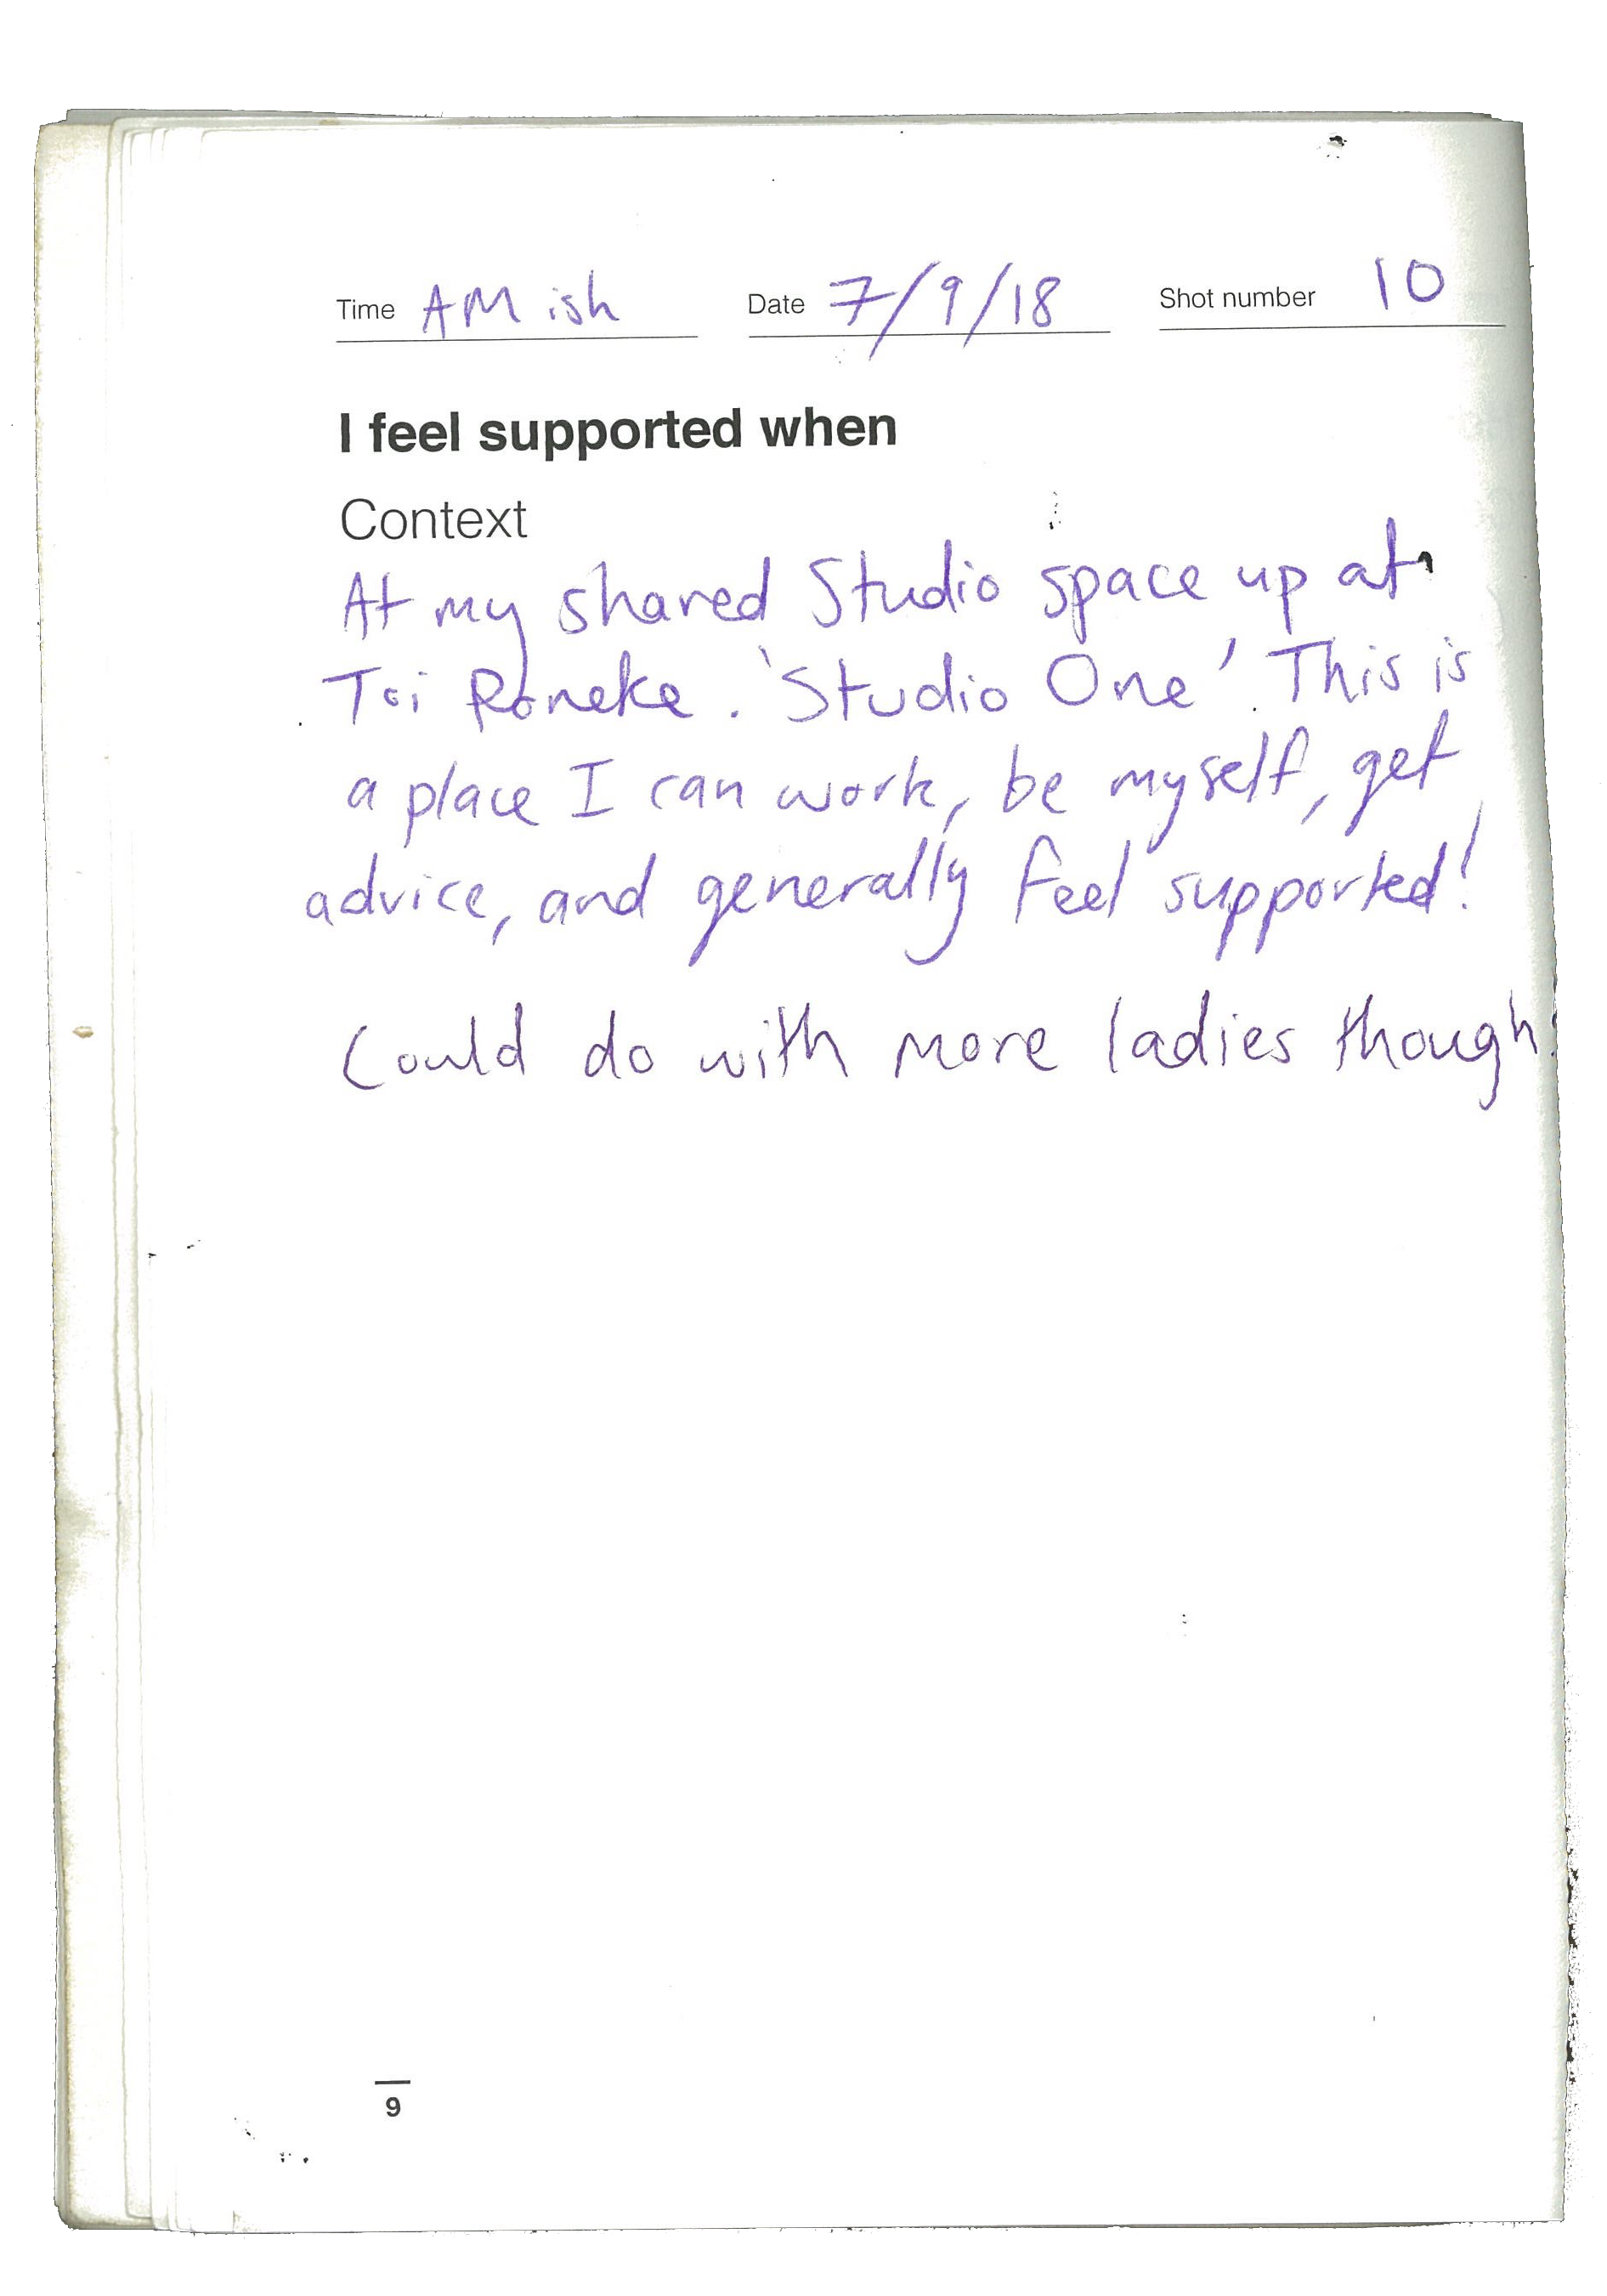 Time AM ish Date 7/9/18 Shot number 10
I feel supported when
Context
At my shared Studio space up at
Toi Poneke. 'Studio One'. This is
a place I can work, be myself, get
advice, and generally feel supported!
Could do with more ladies though!
9